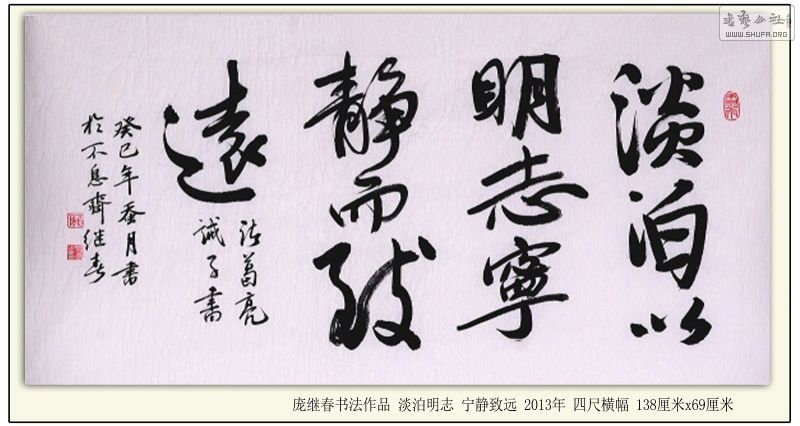 淡泊以
明志寧
靜而致
遠
诸葛亮
誡子書
癸巳年春月書
於不息齊继春
書藝公社
WWW.SHUFA.ORG
庞继春书法作品 淡泊明志 宁静致远 2013年 四尺横幅 138厘米x69厘米